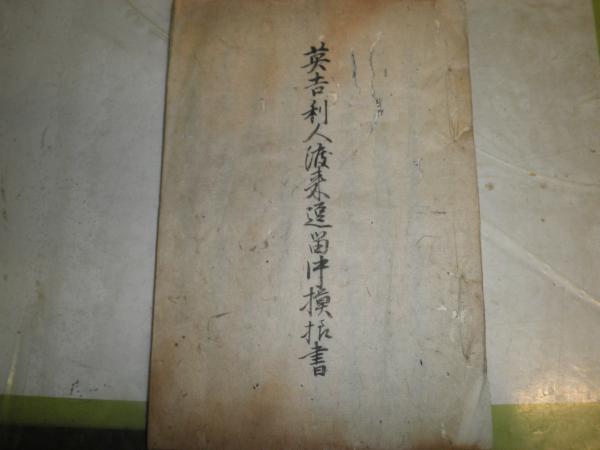 英吉利人渡来逗留中摸括書